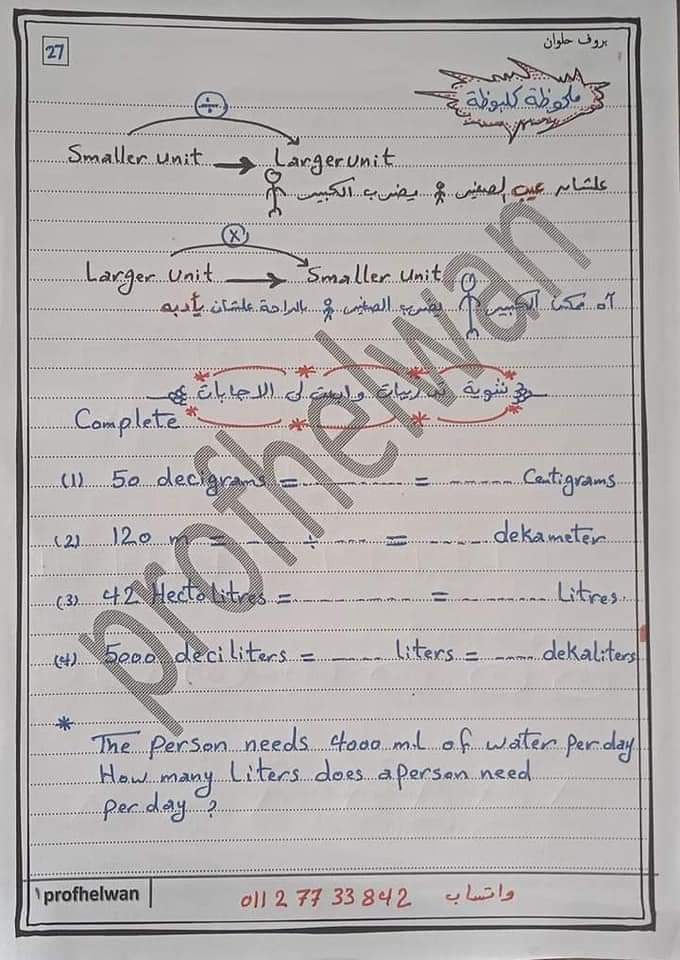 بروف حلوان
27
ملحوظة كلبوظة
÷
Smaller unit → Larger unit
علشان عيب الصغير يضرب الكبير
×
Larger unit → Smaller unit
آه ممكن الكبير يضرب الصغير بالراحة علشان يأدبه
شوية تدريبات وابعت لى الاجابات
Complete
(1) 50 decigrams = ---------- = ------ Centigrams
(2) 120 m = ---- ÷ --- = ---- dekameter
(3) 42 Hectolitres = ---------- = ------- Litres.
(4) 5000 deciliters = ----- liters = ---- dekaliters
* The person needs 4000 mL of water per day
How many Liters does a person need
per day ?
profhelwan
profhelwan
واتساب 011 2 77 33 842